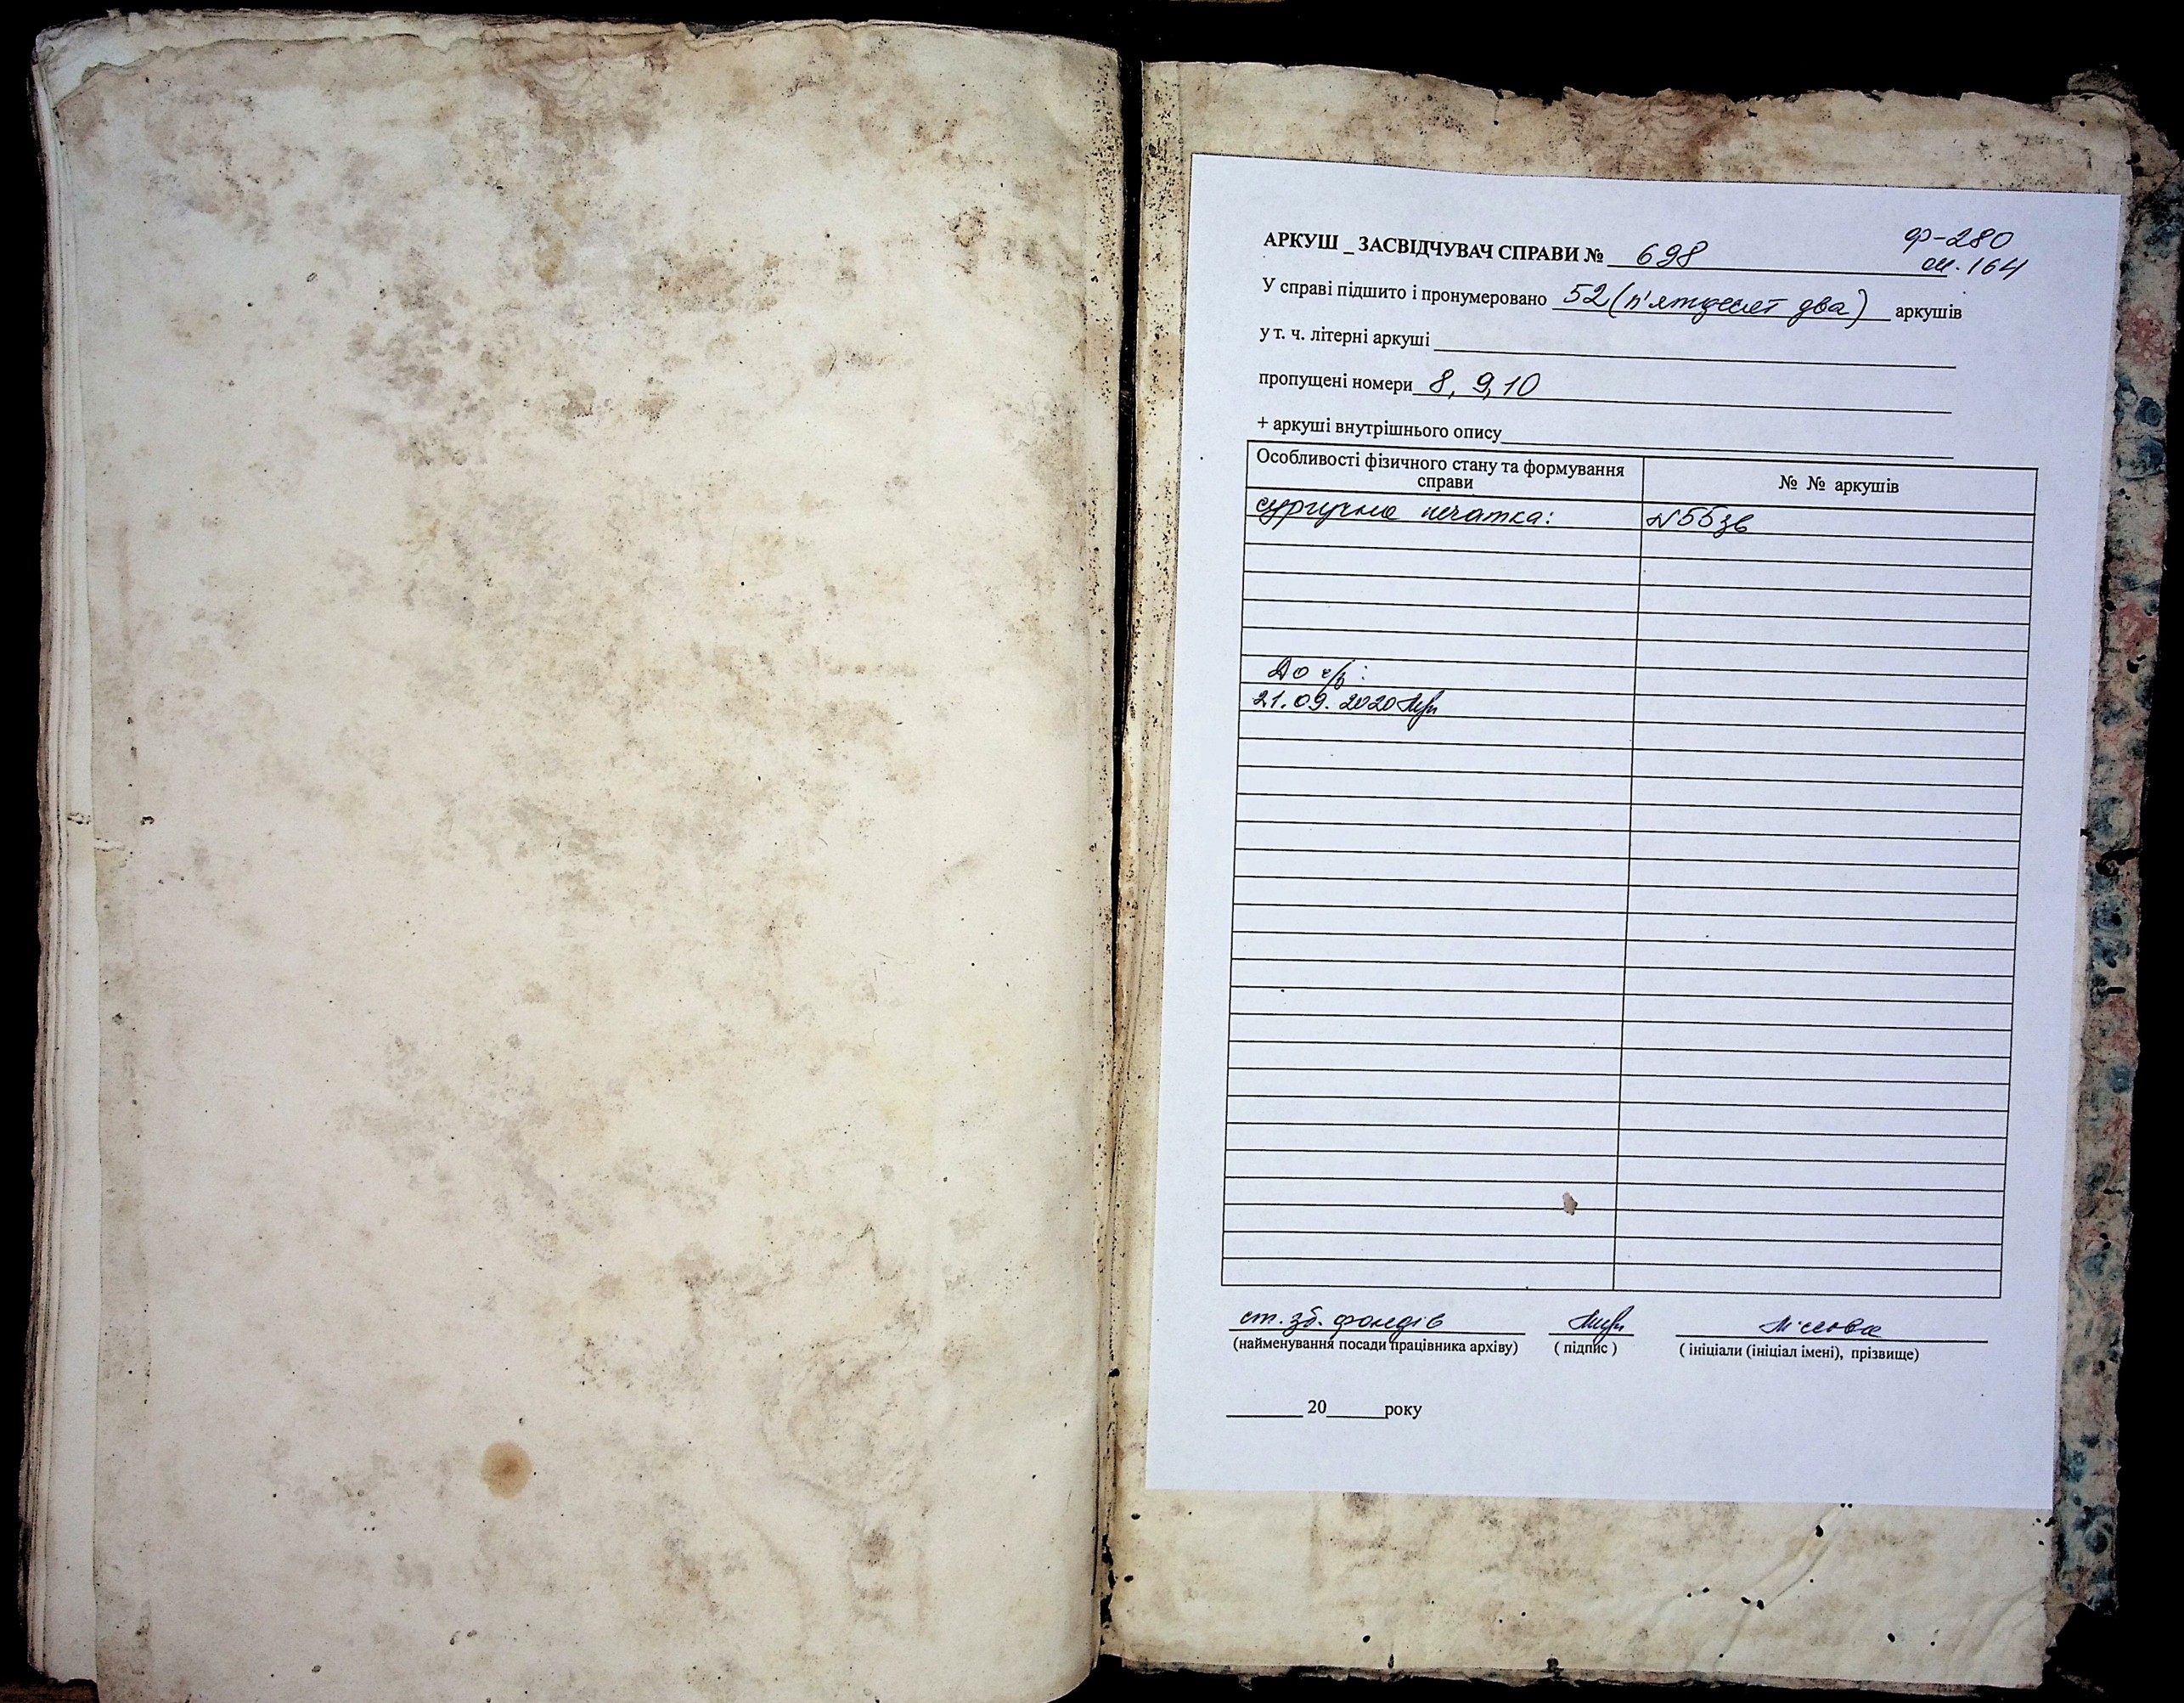 АРКУШ _ ЗАСВІДЧУВАЧ СПРАВИ № 698
ф-280
оп. 164
У справі підшито і пронумеровано 52 (п'ятдесят два) аркушів
у т. ч. літерні аркуші
пропущені номери 8, 9, 10
+ аркуші внутрішнього опису
Особливості фізичного стану та формування справи
№ № аркушів
сургучна печатка:
№55зв
До ч/з:
21.09.2020
ст. зб. фондів
(найменування посади працівника архіву) ( підпис ) ( ініціали (ініціал імені), прізвище)
20 року